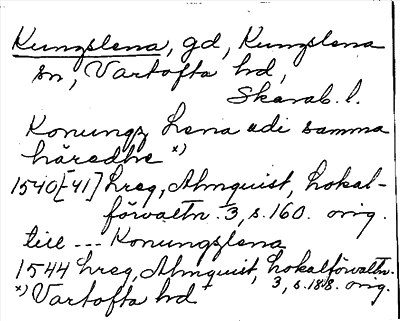 Kungslena, gd, Kungslena
sn, Vartofta hd,
Skarab. l.
Konungz Lena udi samma
häredhe x)
1540[-41] hreg, Almquist, Lokal-
förvaltn. 3, s. 160. orig.
till --- Konungzlena
1544 hreg, Almquist, Lokalförvaltn.
3, s. 188. orig.
x) Vartofta hd